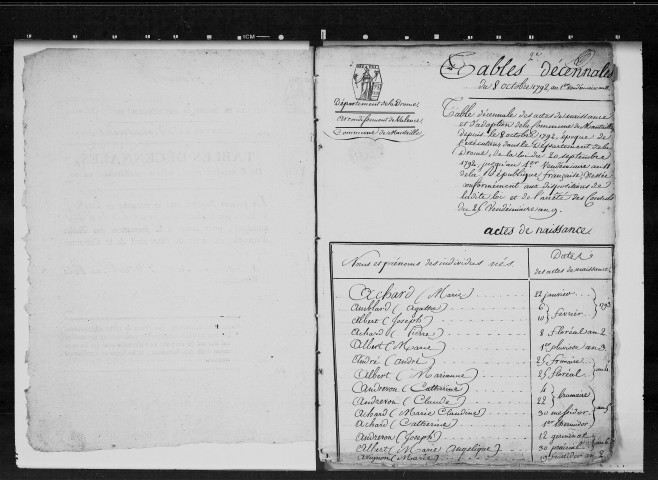 Tables décennales
du 8 octobre 1792 au 1er Vendémiaire
Département de la Drôme
Arrondissement de Valence
Commune de
Table décennale des actes de naissance
et d'adoption de la Commune de
depuis le 8 octobre 1792 époque de
l'exécution dans le Département de la
Drome de la loi du 20 septembre
1792 jusqu'au 1er Vendémiaire an 11
de la République française, Dressée
conformément aux dispositions de
ladite loi et de l'arrêté des Consuls
du 25 Vendémiaire an 9.
actes de naissance
Noms et prénoms des individus nés.
Dates
des actes de naissance
Achard (Marie) 22 janvier 1793
Amblard (Agathe) 6
Albert (Joseph) 10 février
Achard (Pierre) 8 floréal an 2
Albert (Marie) 1er pluviose an 3
André (André) 25 frimaire
Albert (Marianne) 25 floréal
Andreron (Catherine) 4
Andreron (Claude) 22 brumaire
Achard (Marie Claudine) 30 messidor
Achard (Catherine) 1er thermidor
Andreron (Joseph) 12 germinal
Albert (Marie Angelique) 30 prairial
Avignon (Marie)
1CM